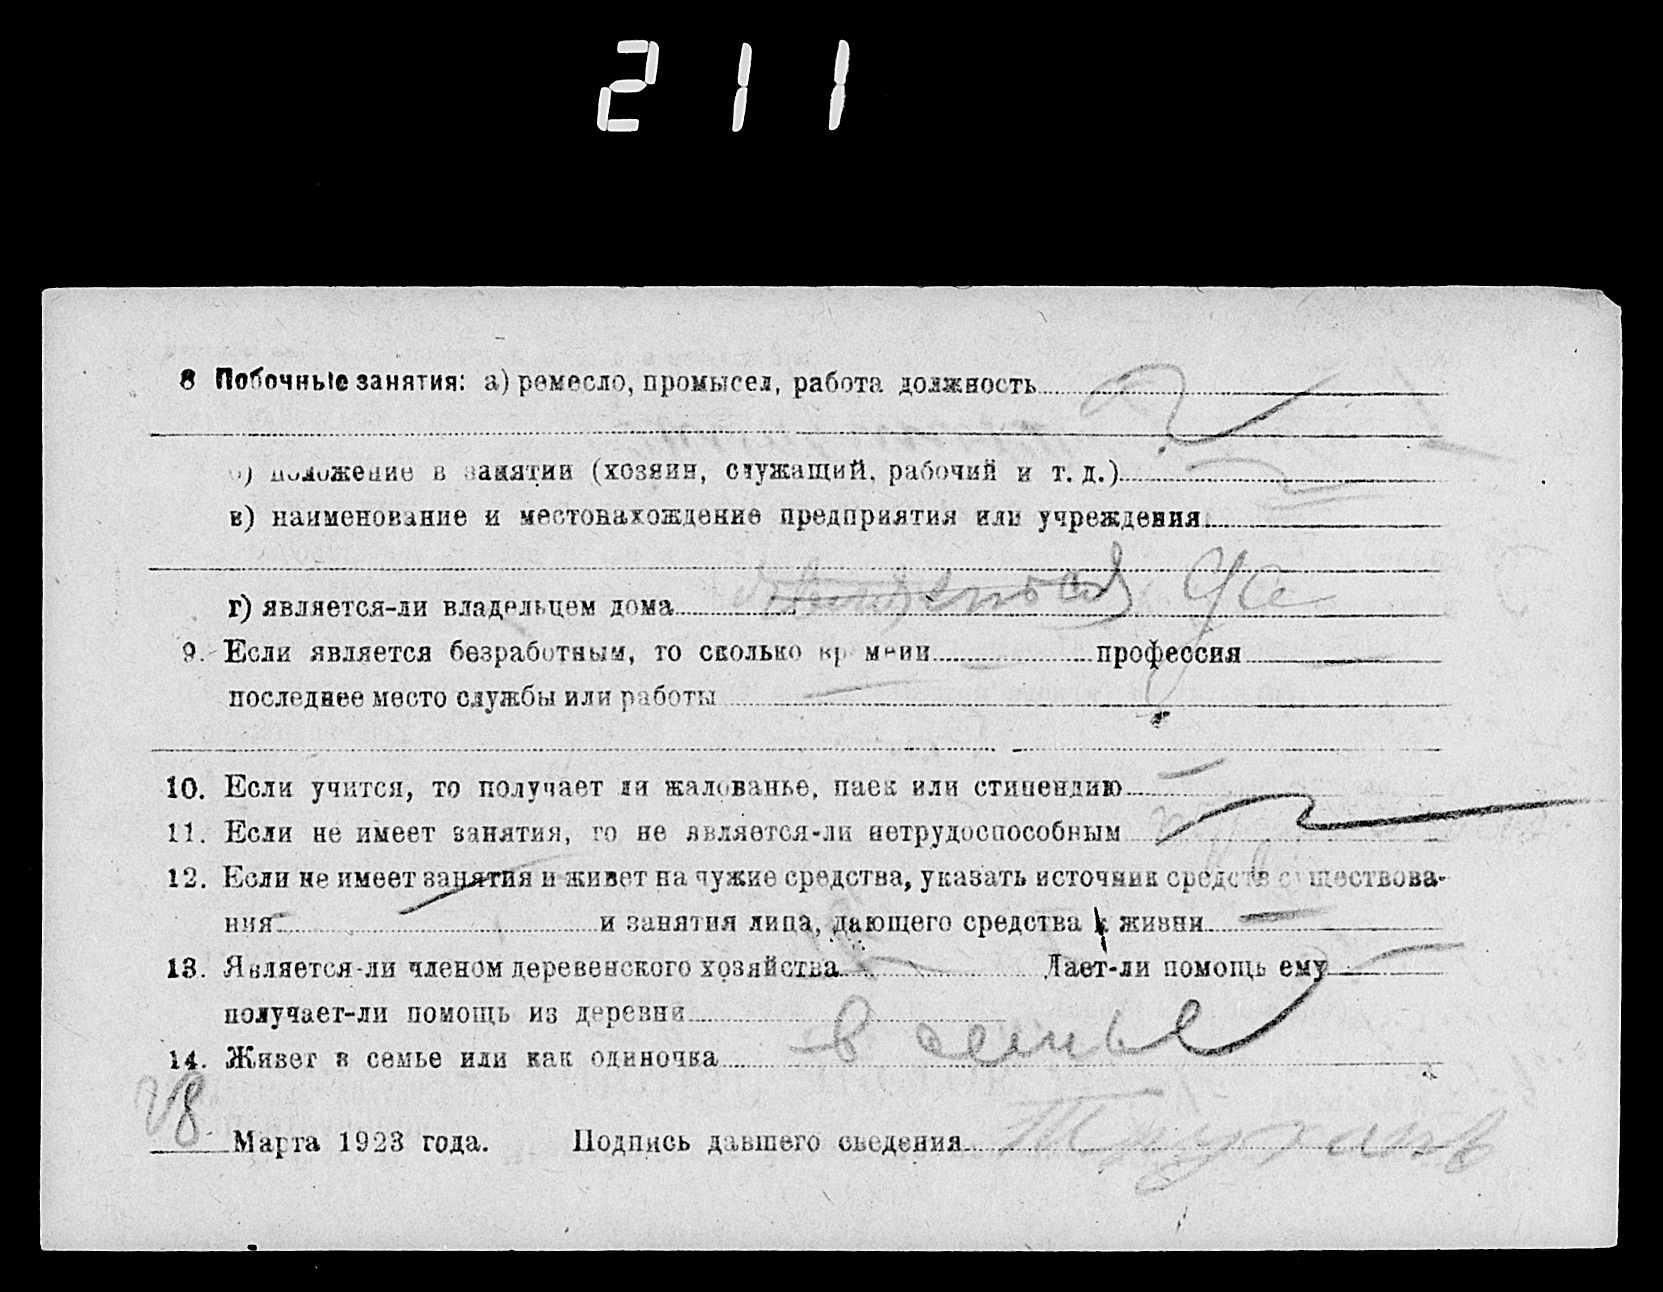 211
8 Побочные занятия: а) ремесло, промысел, работа должность
б) положение в занятии (хозяин, служащий, рабочий и т. д.)
в) наименование и местонахождение предприятия или учреждения
г) является-ли владельцем дома
9. Если является безработным, то сколько времени профессия
последнее место службы или работы
10. Если учится, то получает ли жалованье, паек или стипендию
11. Если не имеет занятия, то не является-ли нетрудоспособным
12. Если не имеет занятия и живет на чужие средства, указать источник средств существова-
ния и занятия лица, дающего средства к жизни
13. Является-ли членом деревенского хозяйства Дает-ли помощь ему
получает-ли помощь из деревни
14. Живет в семье или как одиночка в семье
Марта 1923 года. Подпись давшего сведения